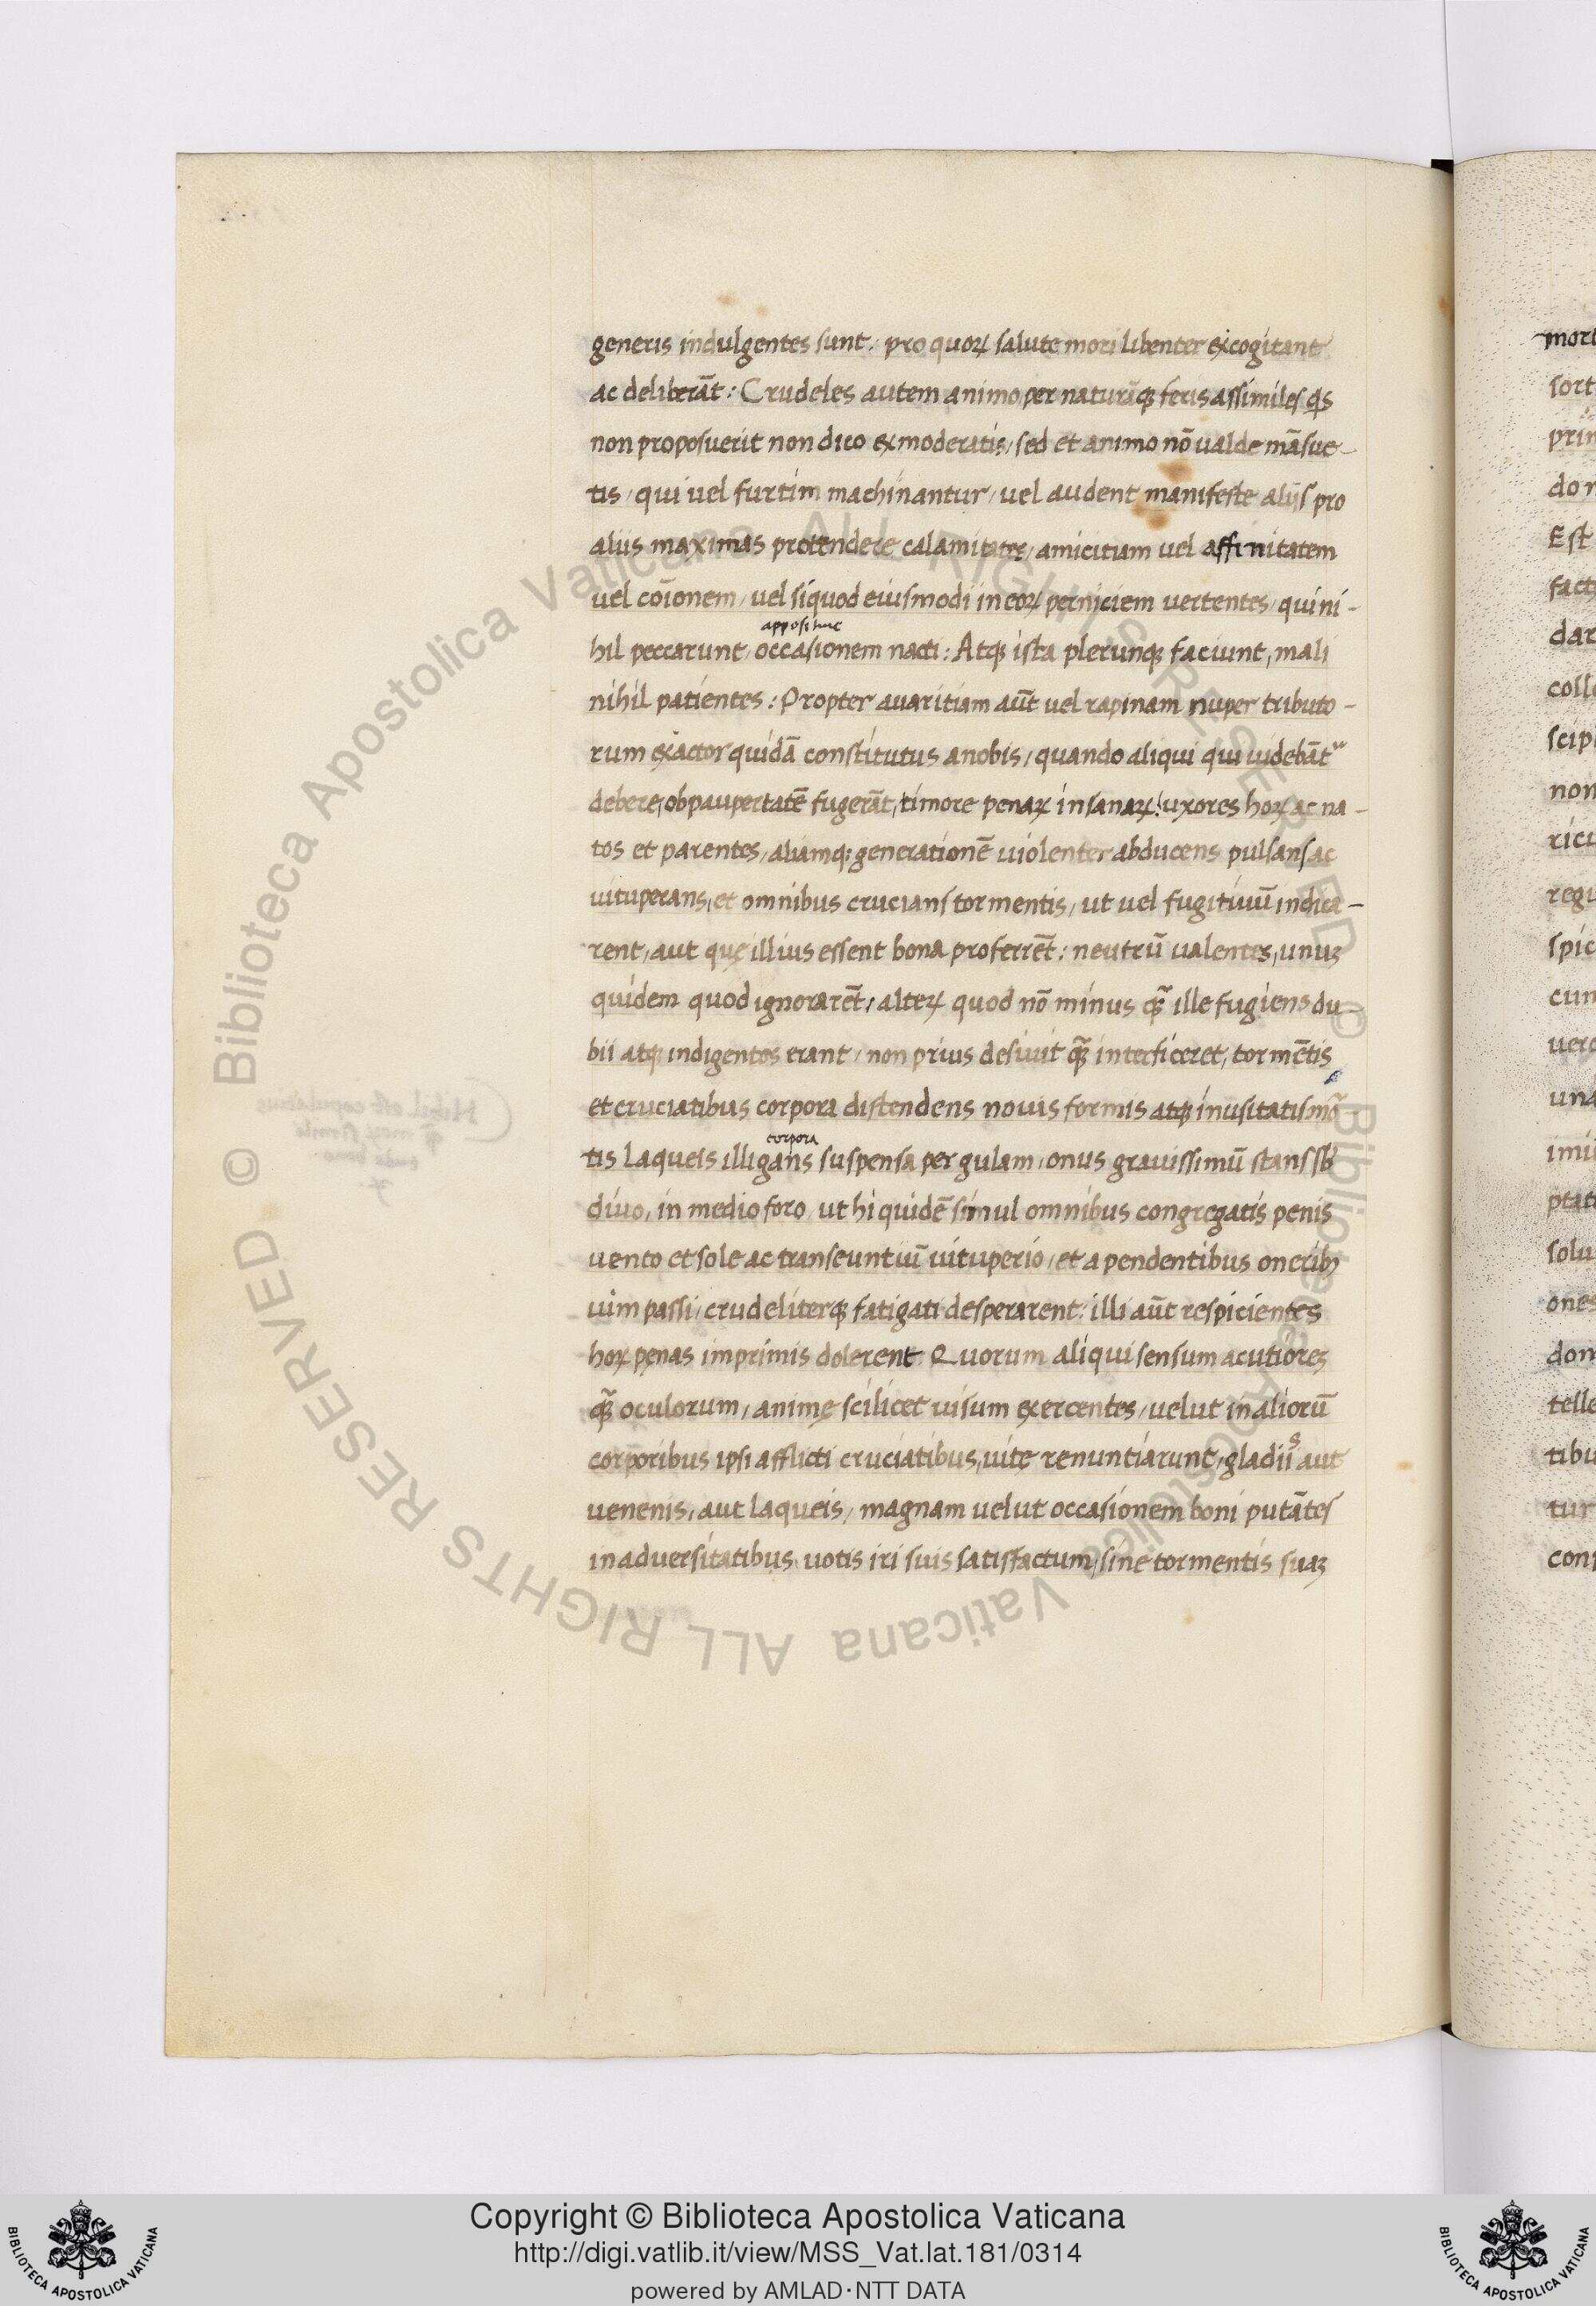 generis indulgentes sunt. pro quoꝝ salute mori libenter excogitant
ac deliberāt: Crudeles autem animo per naturāqꝫ feris assimiles qͥs
non proposuerit non dico ex moderatis, sed et animo nō ualde māsue-
tis, qui uel furtim machinantur, uel audent manifeste aliis pro
aliis maximas protendere calamitates, amicitiam uel affinitatem
uel coīonem, uel siquod eiusmodi in eoꝝ perniciem uertentes, qui ni-
hil peccarunt, occasionem nacti: Atqꝫ ista plerunqꝫ faciunt, mali
nihil patientes: Propter auaritiam aūt uel rapinam nuper tributo-
rum exactor quidā constitutus anobis, quando aliqui qui uidebāt᷑
debere, ob paupertatē fugerāt, timore penaꝝ insanaꝝ! uxores hoꝝ ac na-
tos et parentes, aliamqꝫ generationē uiolenter abducens pulsans ac
uituperans, et omnibus crucians tormentis, ut uel fugitiuū indica-
rent, aut quę illius essent bona proferrēt: neutrū ualentes, unuꝫ
quidem quod ignorarēt, alteꝝ quod nō minus qꝫ̄ ille fugiens du-
bii atqꝫ indigentes erant, non prius desiuit qꝫ̄ interficeret, tormētis
et cruciatibus corpora distendens nouis formis atqꝫ inusitatis mō
corpora
tis laqueis illigans suspensa per gulam, onus grauissimū stans sb
diuo, in medio foro, ut hi quidē simul omnibus congregatis penis
uento et sole ac transeuntiū uituperio, et a pendentibus oneribꝫ
uim passi, crudeliterqꝫ fatigati desperarent: illi aūt respicientes
hoꝝ penas imprimis dolerent. Quorum aliqui sensum acutioreꝫ
qꝫ̄ oculorum, animę scilicet uisum exercentes, uelut in aliorū
corporibus ipsi afflicti cruciatibus, uitę renuntiarunt, gladiis aut
uenenis, aut laqueis, magnam uelut occasionem boni putātes
in aduersitatibus uotis iri suis satisfactum, sine tormentis suaꝫ
© Biblioteca Apostolica Vaticana ALL RIGHTS RESERVED © Biblioteca Apostolica Vaticana ALL RIGHTS RESERVED
Copyright © Biblioteca Apostolica Vaticana
http://digi.vatlib.it/view/MSS_Vat.lat.181/0314
powered by AMLAD·NTT DATA
BIBLIOTECA APOSTOLICA VATICANA
BIBLIOTECA APOSTOLICA VATICANA